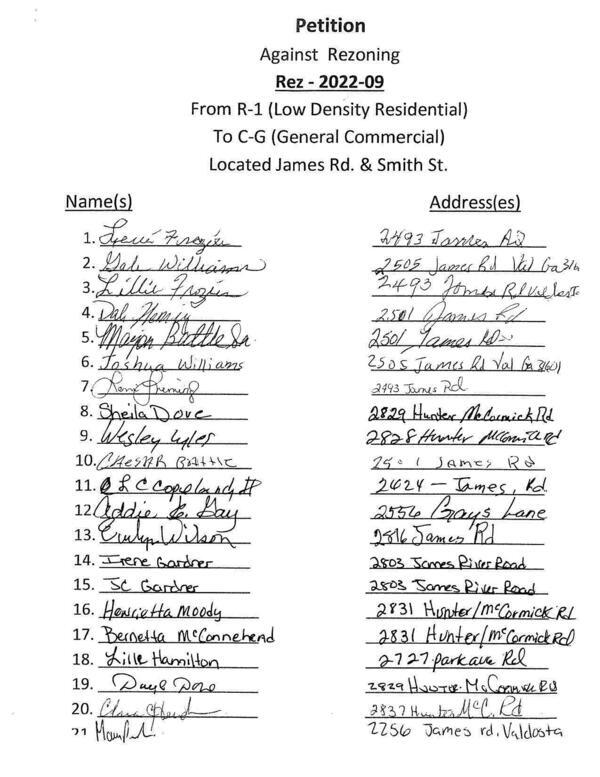 Petition
Against Rezoning
Rez - 2022-09
From R-1 (Low Density Residential)
To C-G (General Commercial)
Located James Rd. & Smith St.
Name(s) Address(es)
1. Frazier 2493 James Rd
2. Gale Williams 2505 James Rd Val Ga
3. Lillie Frazier 2493 James Rd Valdosta
4. Dale 2501 James Rd
5. Major Battle Sr. 2501 James Rd
6. Joshua Williams 2505 James Rd Val Ga 31601
7. 2493 James Rd
8. Sheila Dove 2829 Hunter McCormick Rd
9. Wesley Lyles 2828 Hunter McCormick Rd
10. CAESAR BATTLE 2501 JAMES Rd
11. L C Copeland 2424 - James, Rd.
12 Addie Gay 2556 Grays Lane
13. Evelyn Wilson 2816 James Rd
14. Irene Gardner 2803 James River Road
15. JC Gardner 2803 James River Road
16. Henrietta Moody 2831 Hunter/McCormick Rd
17. Bernetta McConnehead 2831 Hunter/McCormick Rd
18. Lille Hamilton 2727 park ave Rd
19. Dove 2829 Hunter McCormick Rd
20. Clara 2837 Hunter McC. Rd
21 2256 James rd. Valdosta